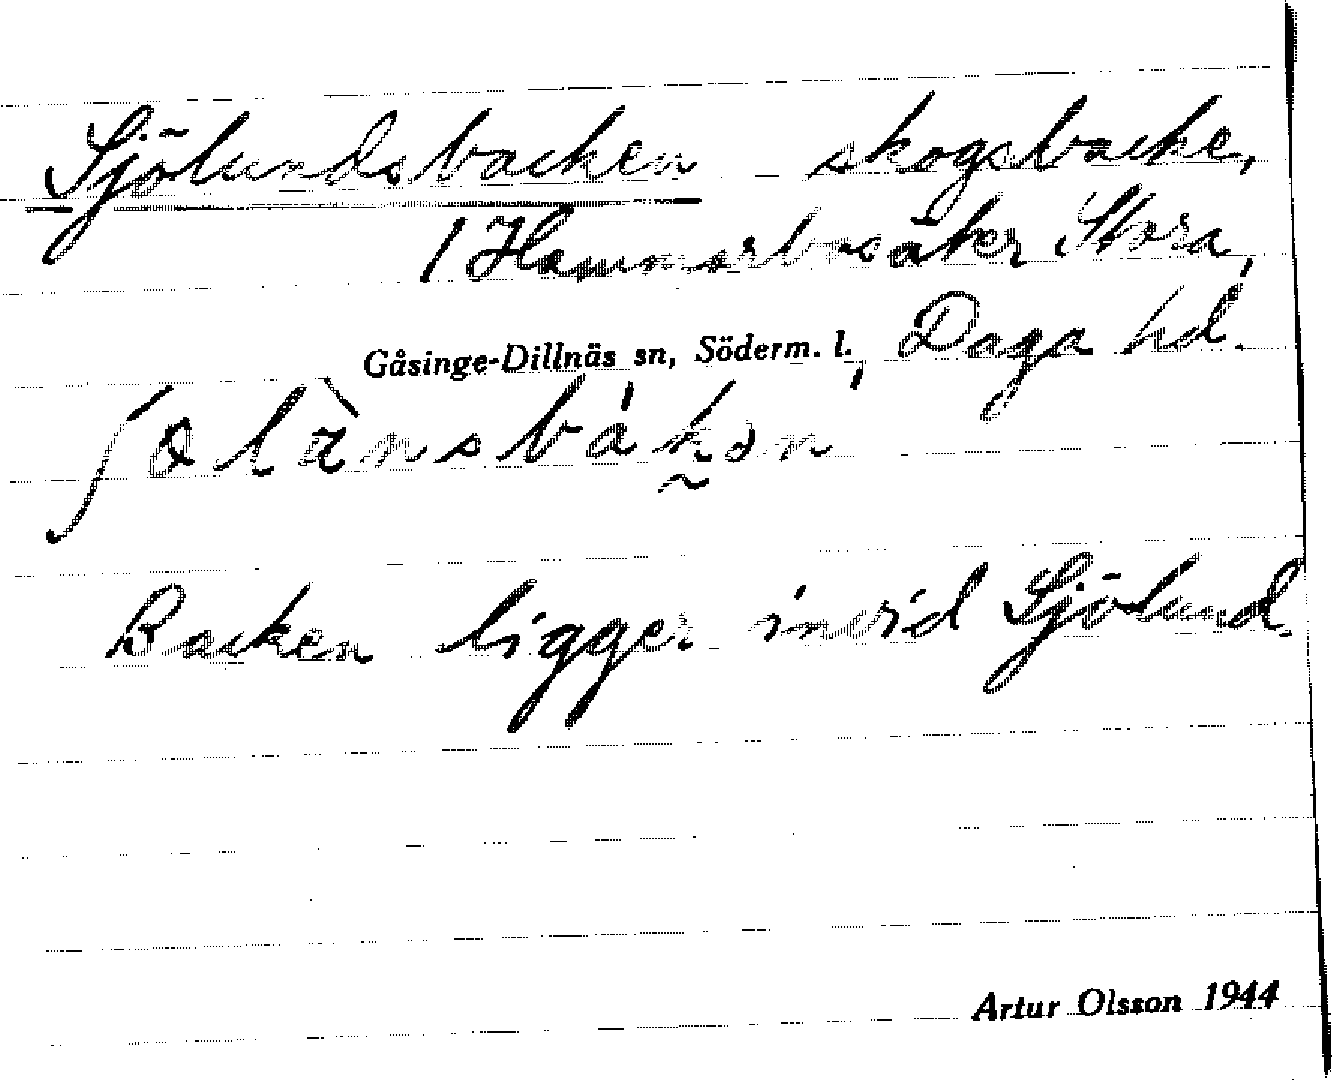 Sjölundsbacken skogsbacke,
/ Hammarbosäter Stora,
Gåsinge-Dillnäs sn, Söderm. l., Daga hd.
Backen ligger invid Sjölund.
Artur Olsson 1944